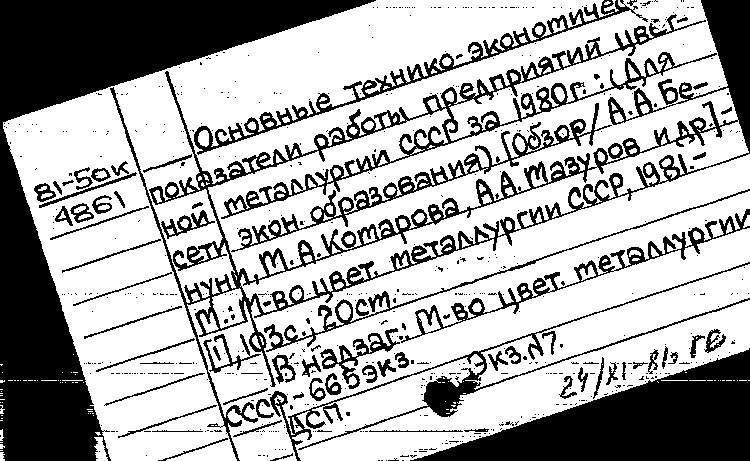 81-50к
4861
Основные технико-экономичес
показатели работы предприятий цвет-
ной металлургии СССР за 1980г. : (Для
сети экон. образования). [Обзор / А.А. Бе-
нуни, М.А. Котарова, А.А. Мазуров и др.] -
М.: М-во цвет. металлургии СССР, 1981.-
[1], 103с.; 20см.
В надзаг.: М-во цвет. металлургии
СССР.- 665экз. Экз.№7.
ДСП.
24/XI-81г.